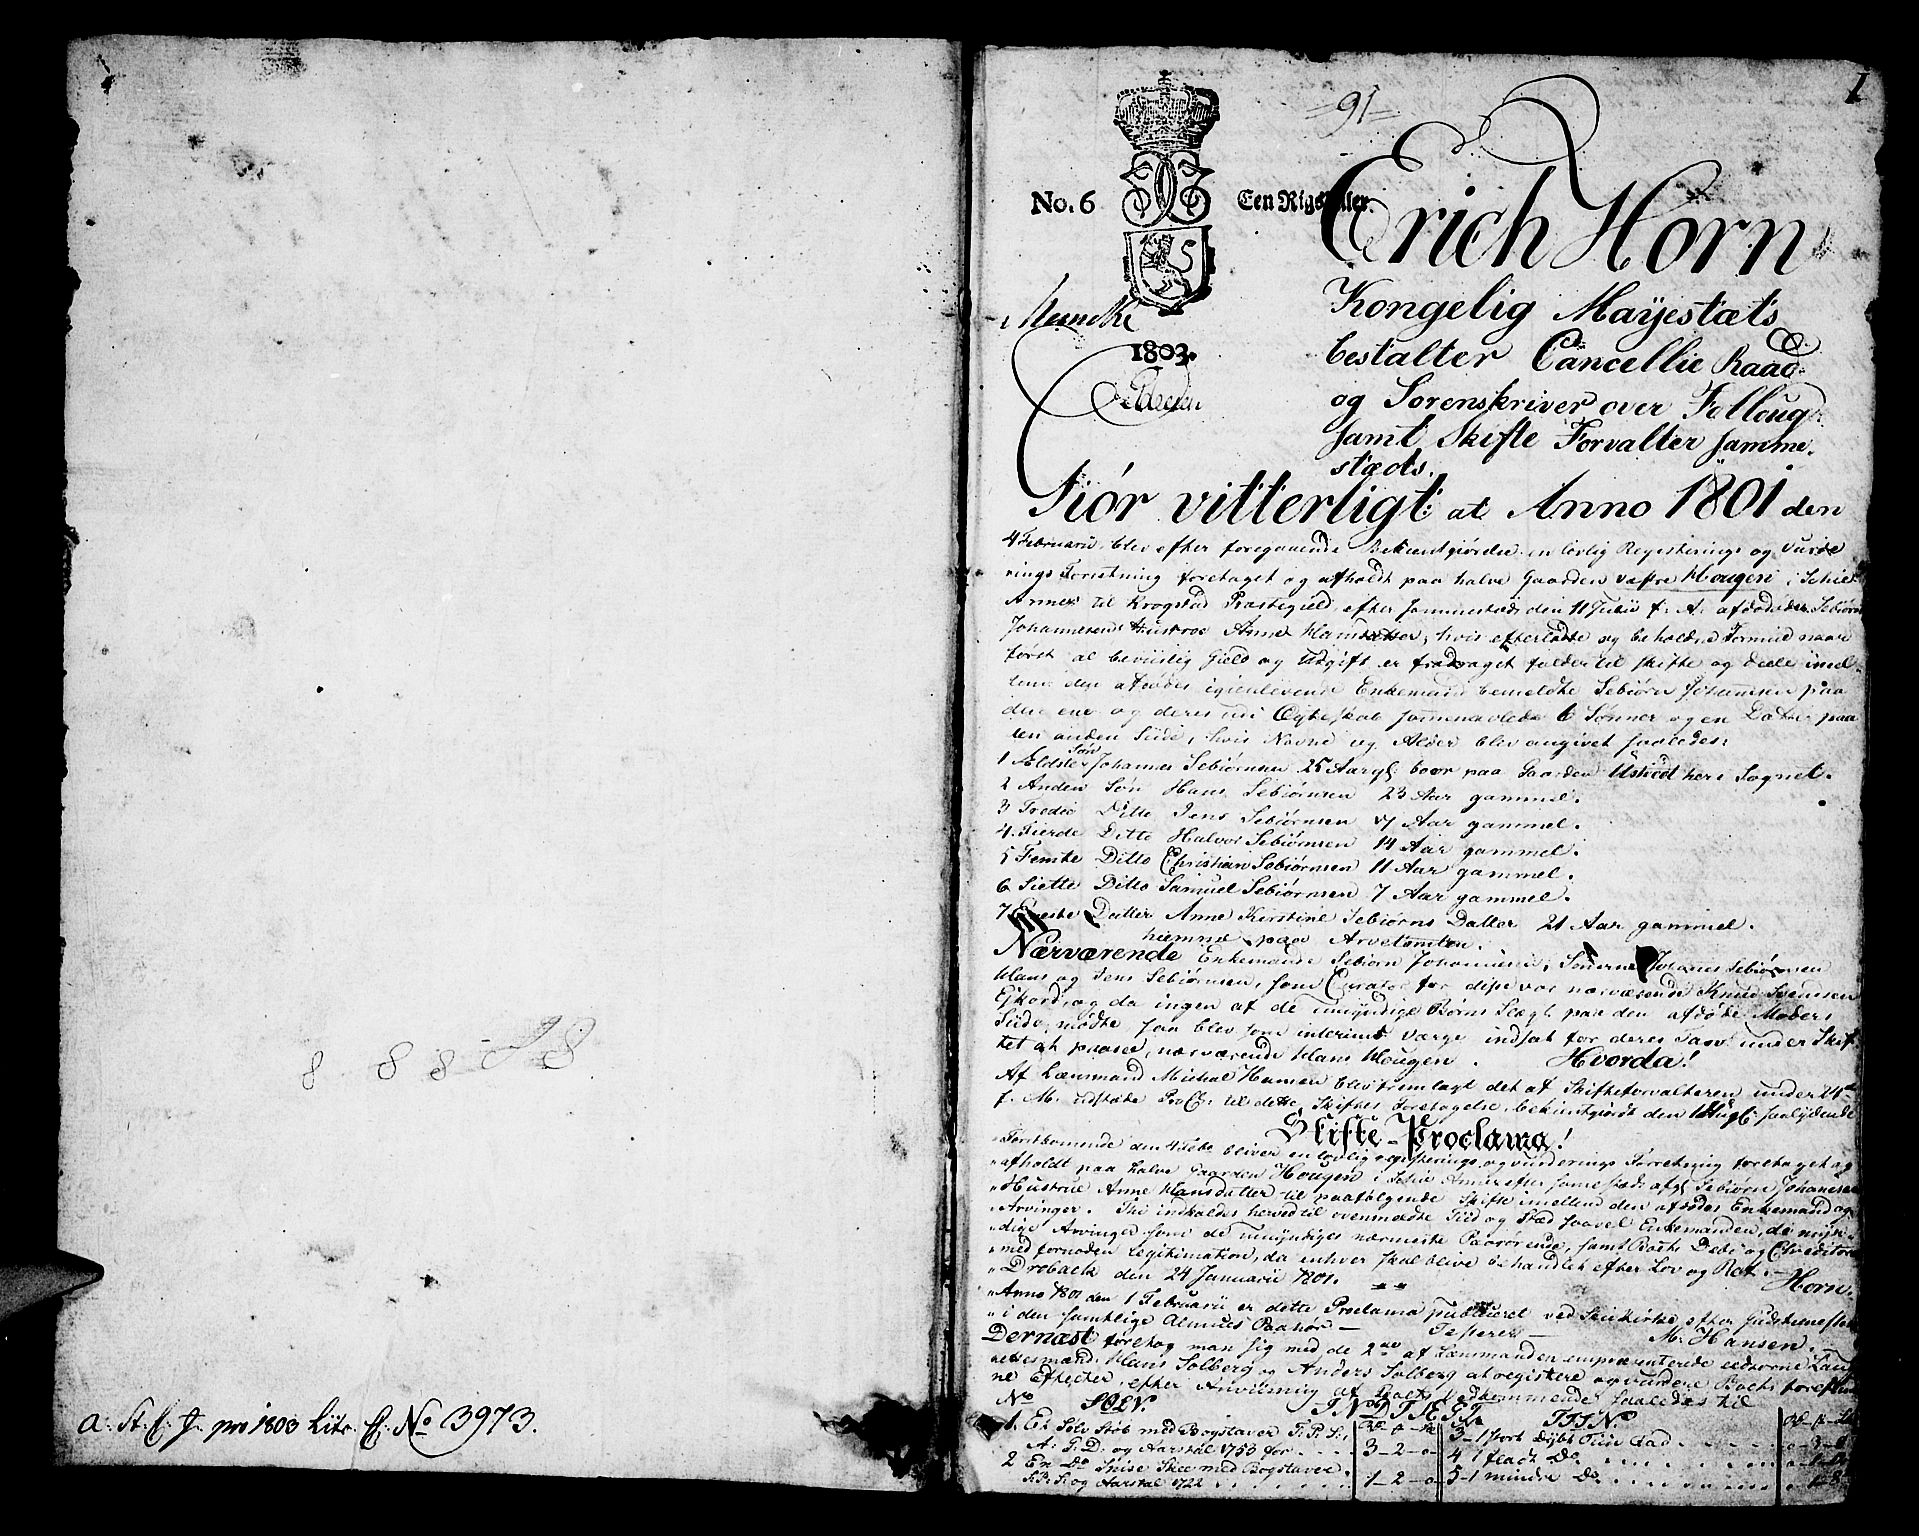 8 8 8 8 8
a: St: C: J. pro 1803 Litr. C. No 3973.
1
=91=
No. 6
Een Rigsdaler.
1803.
Erich Horn
Kongelig Mayestæts
bestalter Cancellie Raad
og Sorenskriver over Folloug
samt Skifte Forvalter samme-
stæds.
Giør vitterligt at Anno 1801 den
4 Februarii blev efter foregaaende Bekientgiørelse en lovlig Registerings og Vurde
rings Forretning foretaget og afholdt paa halve Gaarden vestre Hougen i Schie
Annex til Krogstad Præstegield, efter sammestæds den 11 Julii f: A: afdøde Sebiørn
Johannesens Hustroe Anne Hansdatter, hvis efterladte og beholdne Formue naar
først al beviislig Gield og Udgift er fradraget falder til skifte og deele imel
lem den afdødes igienlevende Enkemand bemeldte Sebiørn Johannesen paa
den ene og deres udi Ægteskab sammenavlede 6 Sønner og en Datter paa
den anden Siide, hvis Navne og Alder blev angivet saaledes:
1 Ældste Søn Johannes Sebiørnsen 25 Aar gl: boer paa Gaarden Ustvedt her i Sognet.
2 Anden Søn Hans Sebiørnsen 23 Aar gammel.
3 Tredie Ditto Jens Sebiørnsen 17 Aar gammel.
4. Fierde Ditto Halvor Sebiørnsen 14 Aar gammel.
5 Femte Ditto Christian Sebiørnsen 11 Aar gammel.
6 Siette Ditto Samuel Sebiørnsen 7 Aar gammel.
7 Eneste Datter Anne Kirstine Sebiørns Datter 21 Aar gammel.
hiemme paa Arvetomten.
Nærværende Enkemanden Sebiørn Johannesen, Sønerne Johanes Sebiørnsen
Hans og Jens Sebiørnsen, som Curator for disse var nærværende Knud Svendsen
Ejkord, og da ingen af de umyndige Børns Slægt paa den afdøde Moders
Siide mødte saa blev som interims Værge indsat for deres Tarv under Skif
tet at paasee, nærværende Hans Hougen. Hvorda!
Af Lænsmand Michal Hansen blev fremlagt det af Skifteforvalteren under 24de
f. M. udstæde Procl: til dette Skiftes Foretagelse, bekientgiordt den 1 saalydende
Skifte-Proclama!
"Førstkomende den 4 Febr bliver en lovlig registerings og vurderings Forretning foretaget og
"afholdt paa halve Gaarden Hougen i Schie Annex efter samestæds afg: Sebiørn Johanesens
"Hustrue Anne Hansdatter til paafølgende Skifte imellem den afdødes Enkemand og
"Arvinger. Thi indkaldes herved til ovenmeldte Tiid og Stæd saavel Enkemanden, de myn
"dige Arvinger som de umyndiges nærmeste Paarørende, samt Boets Debi og Creditorer
"med fornøden Legitimation, da enhver skal blive behandlet efter Lov og Ret.
"Drøback den 24 Januarii 1801. Horn.
"Anno 1801 den 1 Februarii er dette Proclama publiceret ved Skiekirke efter Gudstienesten
"i den samtlige Almues Paahør — Testerer — M. Hansen.
Dernæst foretog man sig med de 2de af Lænsmanden empræsenterede eedsorne Laug
rettesmænd Hans Solberg og Anders Solberg at registere og vurdere Boets forefun
ne Effecter, efter Anviisning af Boets Vedkommende saaledes til
No SØLV. INDTÆGT TIIN.
1. Et Sølv Stob med Bogstaver T. P. S.
A: T. D: og Aarstal 1753 for 3–2–0
2 En Do Spise Skee med Bogstaver
S. P: S: og Aarstal 1722 1–2–0
3–1 stort dybt Tiin Fad
4 1 fladt Do
5–1 mindre Do